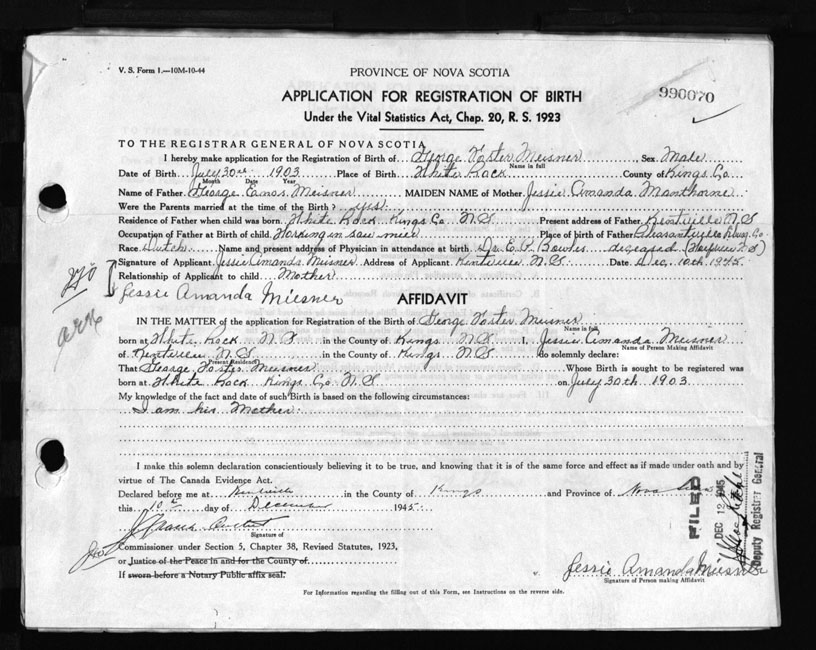 V. S. Form 1.—10M-10-44
PROVINCE OF NOVA SCOTIA
990070
APPLICATION FOR REGISTRATION OF BIRTH
Under the Vital Statistics Act, Chap. 20, R. S. 1923
TO THE REGISTRAR GENERAL OF NOVA SCOTIA
I hereby make application for the Registration of Birth of George Foster Meisner, Sex Male
Name in full
Date of Birth July 30th 1903 Place of Birth White Rock County of Kings Co.
Month Date Year
Name of Father George Meisner MAIDEN NAME of Mother Jessie Amanda Manthorne
Were the Parents married at the time of the Birth? yes
Residence of Father when child was born. White Rock Kings Co N.S Present address of Father. Kentville N.S
Occupation of Father at Birth of child. Working in saw mill Place of birth of Father Pleasantville Co
Race Dutch Name and present address of Physician in attendance at birth. Dr. E. Bowles deceased
Signature of Applicant Jessie Amanda Meisner Address of Applicant Kentville N.S Date Dec. 10th 1945
Relationship of Applicant to child Mother
Jessie Amanda Miesner
AFFIDAVIT
IN THE MATTER of the application for Registration of the Birth of George Foster Meisner
Name in full
born at White Rock N.S in the County of Kings N.S I, Jessie Amanda Meisner
Name of Person Making Affidavit
of Kentville N.S in the County of Kings N.S do solemnly declare:
(Present Residence)
That George Foster Meisner Whose Birth is sought to be registered was
born at White Rock Kings Co N.S on July 30th 1903
My knowledge of the fact and date of such Birth is based on the following circumstances:
I am his Mother.
I make this solemn declaration conscientiously believing it to be true, and knowing that it is of the same force and effect as if made under oath and by
virtue of The Canada Evidence Act.
Declared before me at Kentville in the County of Kings and Province of Nova
this 10th day of December 1945
Signature of
Commissioner under Section 5, Chapter 38, Revised Statutes, 1923,
or Justice of the Peace in and for the County of
If sworn before a Notary Public affix seal.
FILED
DEC 12 1945
Deputy Registrar General
Jessie Amanda Miesner
Signature of Person making Affidavit
For Information regarding the filling out of this Form, see Instructions on the reverse side.